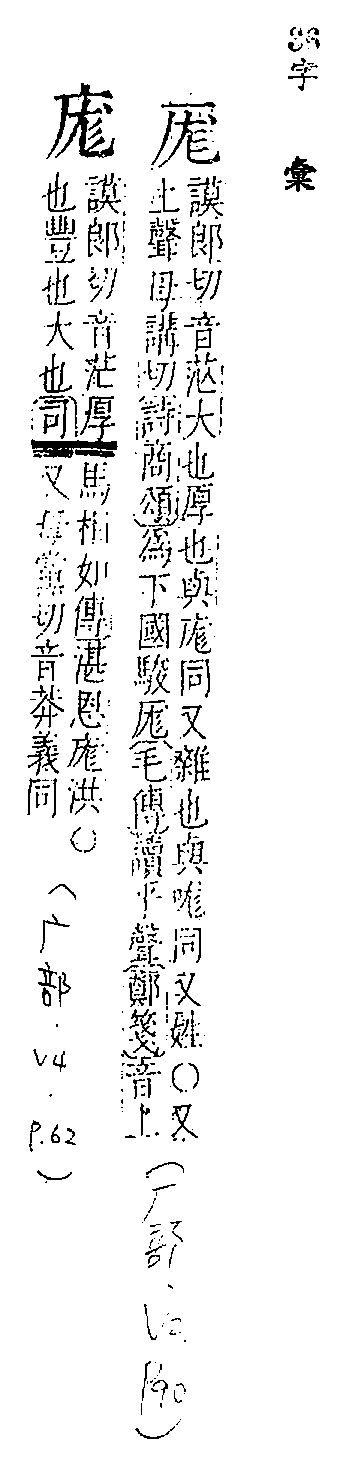 36字 彙
厖
謨郎切音茫大也厚也與庬同又雜也與哤同又姓〇又
上聲母講切詩商頌為下國駿厖毛傳讀平聲鄭箋音上
(厂部.V2 P90)
庬
謨郎切音茫厚
也豐也大也司
馬相如傳湛恩庬洪〇
又母黨切音莽義同
(广部.V4.P.62)